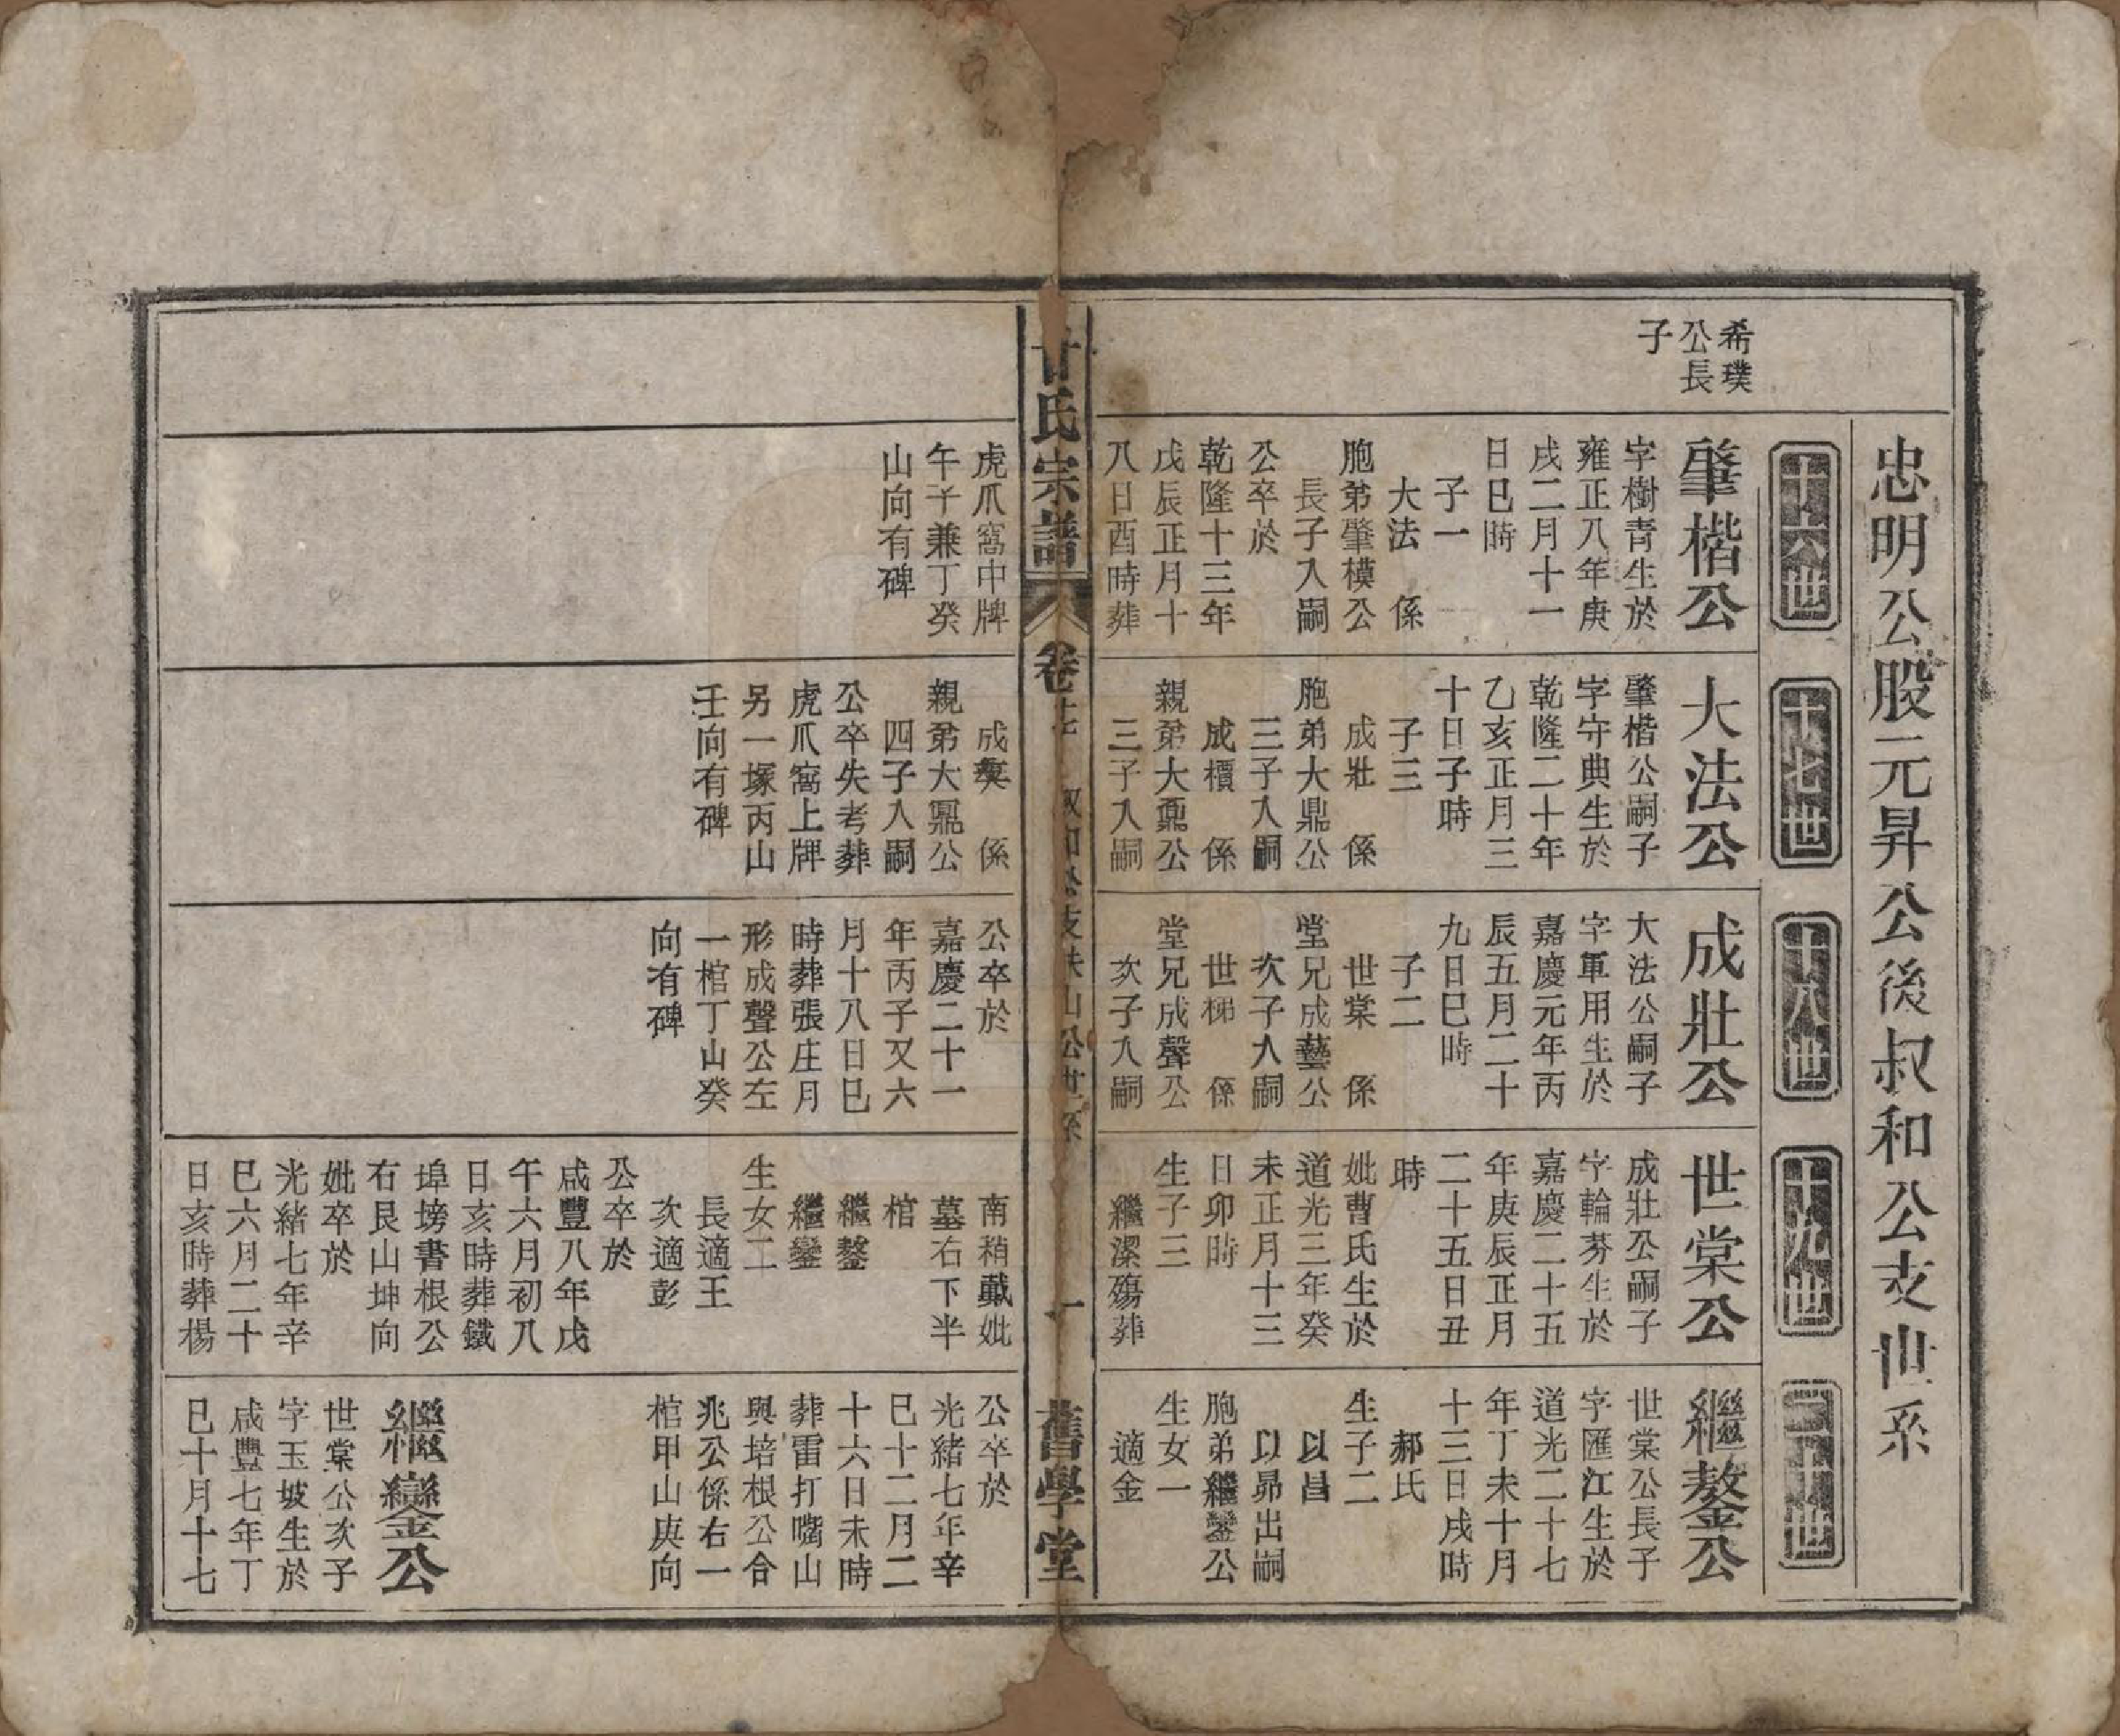 忠明公股元昇公後叔和公支世系
十六世
十七世
十八世
十九世
二十世
希璞
公長
子
肇楷公
字樹青生於
雍正八年庚
戌二月十一
日巳時
子一
大法　係
胞弟肇模公
長子入嗣
公卒於
乾隆十三年
戊辰正月十
八日酉時葬
大法公
肇楷公嗣子
字守典生於
乾隆二十年
乙亥正月三
十日子時
子三
成壯　係
胞弟大鼎公
三子入嗣
成櫃　係
親弟大鼏公
三子入嗣
成壯公
大法公嗣子
字軍用生於
嘉慶元年丙
辰五月二十
九日巳時
子二
世棠　係
堂兄成藝公
次子入嗣
世梯　係
堂兄成聲公
次子入嗣
世棠公
成壯公嗣子
字輪芬生於
嘉慶二十五
年庚辰正月
二十五日丑
時
妣曹氏生於
道光三年癸
未正月十三
日卯時
生子三
繼潔殤葬
繼鏊公
世棠公長子
字匯江生於
道光二十七
年丁未十月
十三日戌時
郝氏
生子二
以昌
以昴出嗣
胞弟繼鑾公
生女一
適金
氏宗譜
卷
支
山公世系
一
舊學堂
虎爪窩中牌
午子兼丁癸
山向有碑
成　係
親弟大鼏公
四子入嗣
公卒失考葬
虎爪窩上牌
另一塚丙山
壬向有碑
公卒於
嘉慶二十一
年丙子又六
月十八日巳
時葬張庄月
形成聲公左
一棺丁山癸
向有碑
南稍戴妣
墓右下半
棺
繼鏊
繼鑾
生女二
長適王
次適彭
公卒於
咸豐八年戊
午六月初八
日亥時葬鐵
埠塝書根公
右艮山坤向
妣卒於
光緒七年辛
巳六月二十
日亥時葬楊
公卒於
光緒七年辛
巳十二月二
十六日未時
葬雷打嘴山
與培根公合
兆公係右一
棺甲山庚向
繼鑾公
世棠公次子
字玉坡生於
咸豐七年丁
巳十月十七